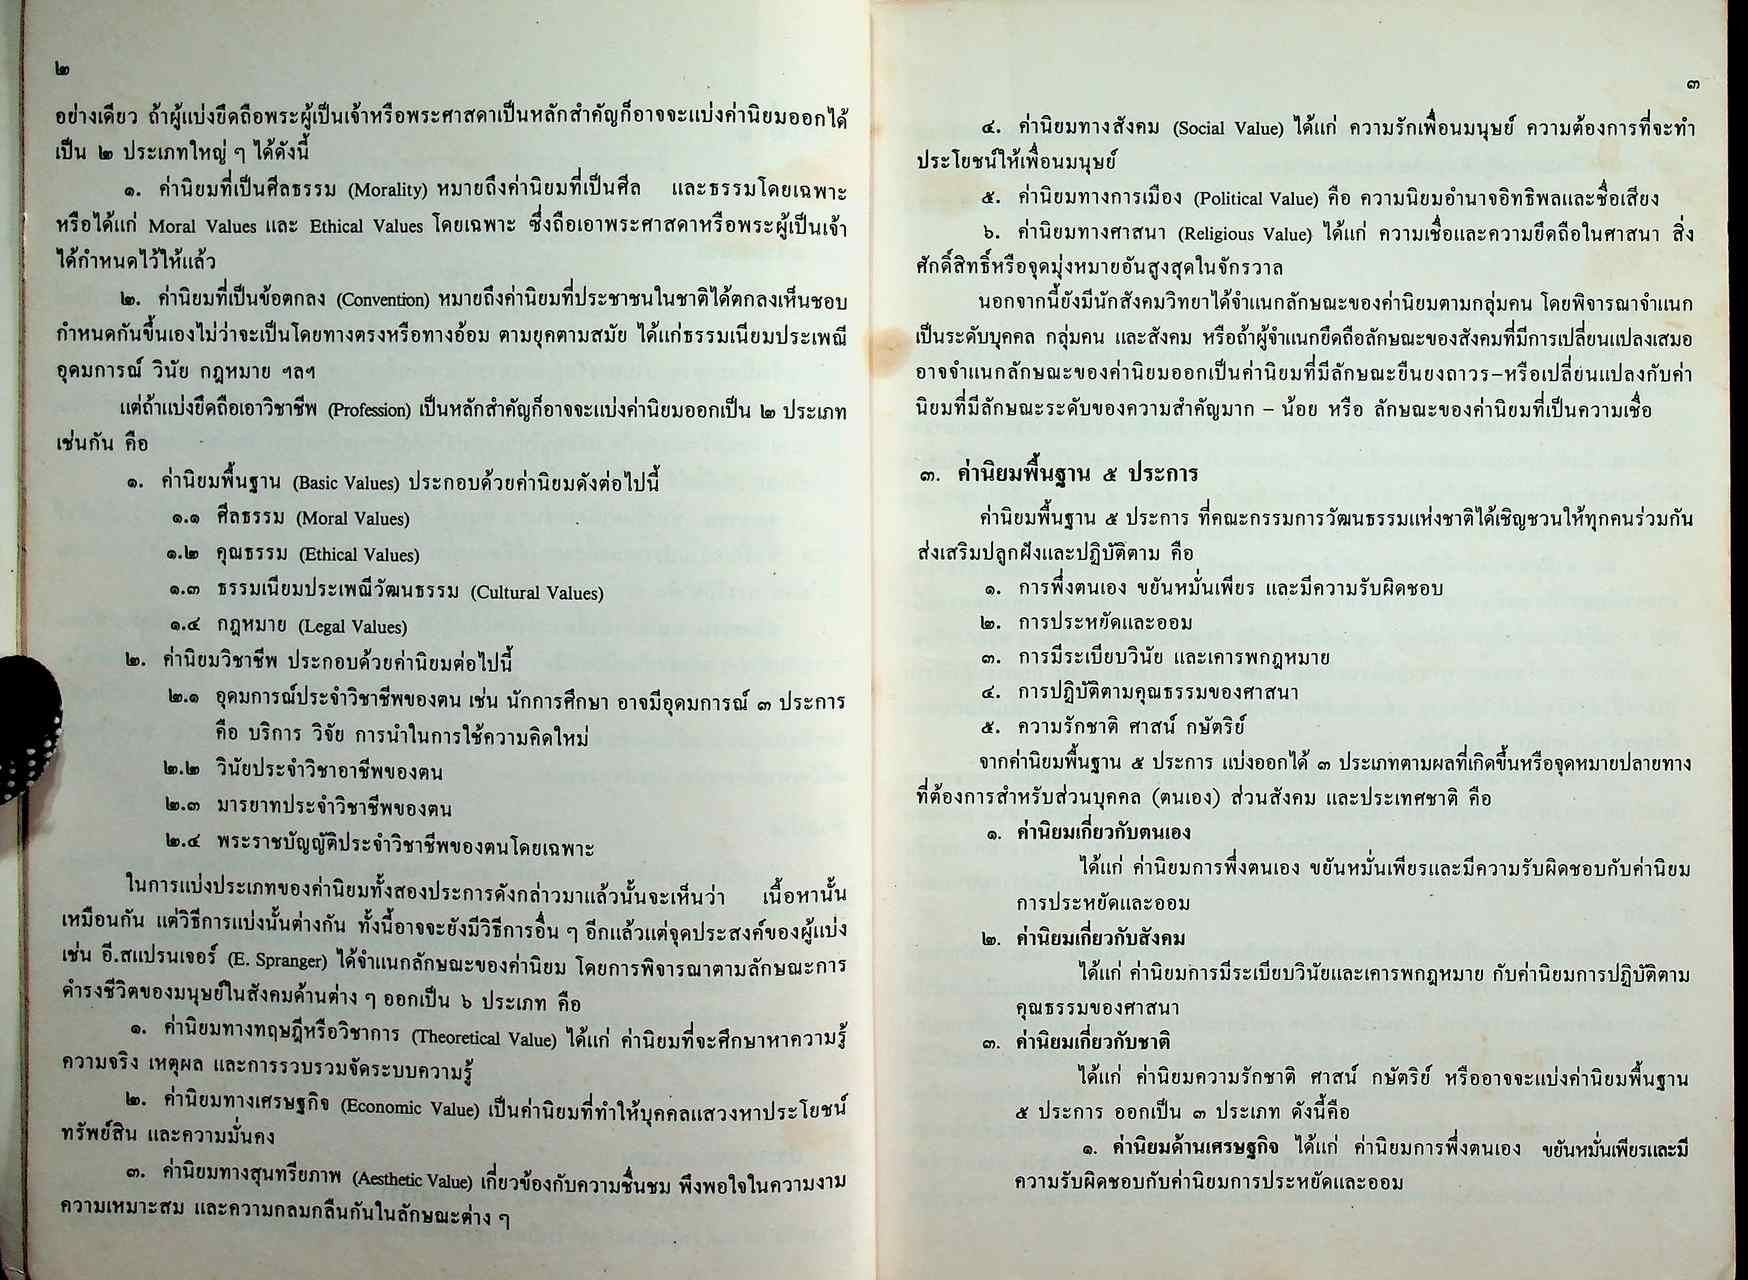 ๒
อย่างเดียว ถ้าผู้แบ่งยึดถือพระผู้เป็นเจ้าหรือพระศาสดาเป็นหลักสำคัญก็อาจจะแบ่งค่านิยมออกได้
เป็น ๒ ประเภทใหญ่ ๆ ได้ดังนี้
๑. ค่านิยมที่เป็นศีลธรรม (Morality) หมายถึงค่านิยมที่เป็นศีล และธรรมโดยเฉพาะ
หรือได้แก่ Moral Values และ Ethical Values โดยเฉพาะ ซึ่งถือเอาพระศาสดาหรือพระผู้เป็นเจ้า
ได้กำหนดไว้ให้แล้ว
๒. ค่านิยมที่เป็นข้อตกลง (Convention) หมายถึงค่านิยมที่ประชาชนในชาติได้ตกลงเห็นชอบ
กำหนดกันขึ้นเองไม่ว่าจะเป็นโดยทางตรงหรือทางอ้อม ตามยุคตามสมัย ได้แก่ธรรมเนียมประเพณี
อุดมการณ์ วินัย กฎหมาย ฯลฯ
แต่ถ้าแบ่งยึดถือเอาวิชาชีพ (Profession) เป็นหลักสำคัญก็อาจจะแบ่งค่านิยมออกเป็น ๒ ประเภท
เช่นกัน คือ
๑. ค่านิยมพื้นฐาน (Basic Values) ประกอบด้วยค่านิยมดังต่อไปนี้
๑.๑ ศีลธรรม (Moral Values)
๑.๒ คุณธรรม (Ethical Values)
๑.๓ ธรรมเนียมประเพณีวัฒนธรรม (Cultural Values)
๑.๔ กฎหมาย (Legal Values)
๒. ค่านิยมวิชาชีพ ประกอบด้วยค่านิยมต่อไปนี้
๒.๑ อุดมการณ์ประจำวิชาชีพของตน เช่น นักการศึกษา อาจมีอุดมการณ์ ๓ ประการ
คือ บริการ วิจัย การนำในการใช้ความคิดใหม่
๒.๒ วินัยประจำวิชาอาชีพของตน
๒.๓ มารยาทประจำวิชาชีพของตน
๒.๔ พระราชบัญญัติประจำวิชาชีพของตนโดยเฉพาะ
ในการแบ่งประเภทของค่านิยมทั้งสองประการดังกล่าวมาแล้วนั้นจะเห็นว่า เนื้อหานั้น
เหมือนกัน แต่วิธีการแบ่งนั้นต่างกัน ทั้งนี้อาจจะยังมีวิธีการอื่น ๆ อีกแล้วแต่จุดประสงค์ของผู้แบ่ง
เช่น อี.สแปรนเจอร์ (E. Spranger) ได้จำแนกลักษณะของค่านิยม โดยการพิจารณาตามลักษณะการ
ดำรงชีวิตของมนุษย์ในสังคมด้านต่าง ๆ ออกเป็น ๖ ประเภท คือ
๑. ค่านิยมทางทฤษฎีหรือวิชาการ (Theoretical Value) ได้แก่ ค่านิยมที่จะศึกษาหาความรู้
ความจริง เหตุผล และการรวบรวมจัดระบบความรู้
๒. ค่านิยมทางเศรษฐกิจ (Economic Value) เป็นค่านิยมที่ทำให้บุคคลแสวงหาประโยชน์
ทรัพย์สิน และความมั่นคง
๓. ค่านิยมทางสุนทรียภาพ (Aesthetic Value) เกี่ยวข้องกับความชื่นชม พึงพอใจในความงาม
ความเหมาะสม และความกลมกลืนกันในลักษณะต่าง ๆ
๓
๔. ค่านิยมทางสังคม (Social Value) ได้แก่ ความรักเพื่อนมนุษย์ ความต้องการที่จะทำ
ประโยชน์ให้เพื่อนมนุษย์
๕. ค่านิยมทางการเมือง (Political Value) คือ ความนิยมอำนาจอิทธิพลและชื่อเสียง
๖. ค่านิยมทางศาสนา (Religious Value) ได้แก่ ความเชื่อและความยึดถือในศาสนา สิ่ง
ศักดิ์สิทธิ์หรือจุดมุ่งหมายอันสูงสุดในจักรวาล
นอกจากนี้ยังมีนักสังคมวิทยาได้จำแนกลักษณะของค่านิยมตามกลุ่มคน โดยพิจารณาจำแนก
เป็นระดับบุคคล กลุ่มคน และสังคม หรือถ้าผู้จำแนกยึดถือลักษณะของสังคมที่มีการเปลี่ยนแปลงเสมอ
อาจจำแนกลักษณะของค่านิยมออกเป็นค่านิยมที่มีลักษณะยืนยงถาวร–หรือเปลี่ยนแปลงกับค่า
นิยมที่มีลักษณะระดับของความสำคัญมาก – น้อย หรือ ลักษณะของค่านิยมที่เป็นความเชื่อ
๓. ค่านิยมพื้นฐาน ๕ ประการ
ค่านิยมพื้นฐาน ๕ ประการ ที่คณะกรรมการวัฒนธรรมแห่งชาติได้เชิญชวนให้ทุกคนร่วมกัน
ส่งเสริมปลูกฝังและปฏิบัติตาม คือ
๑. การพึ่งตนเอง ขยันหมั่นเพียร และมีความรับผิดชอบ
๒. การประหยัดและออม
๓. การมีระเบียบวินัย และเคารพกฎหมาย
๔. การปฏิบัติตามคุณธรรมของศาสนา
๕. ความรักชาติ ศาสน์ กษัตริย์
จากค่านิยมพื้นฐาน ๕ ประการ แบ่งออกได้ ๓ ประเภทตามผลที่เกิดขึ้นหรือจุดหมายปลายทาง
ที่ต้องการสำหรับส่วนบุคคล (ตนเอง) ส่วนสังคม และประเทศชาติ คือ
๑. ค่านิยมเกี่ยวกับตนเอง
ได้แก่ ค่านิยมการพึ่งตนเอง ขยันหมั่นเพียรและมีความรับผิดชอบกับค่านิยม
การประหยัดและออม
๒. ค่านิยมเกี่ยวกับสังคม
ได้แก่ ค่านิยมการมีระเบียบวินัยและเคารพกฎหมาย กับค่านิยมการปฏิบัติตาม
คุณธรรมของศาสนา
๓. ค่านิยมเกี่ยวกับชาติ
ได้แก่ ค่านิยมความรักชาติ ศาสน์ กษัตริย์ หรืออาจจะแบ่งค่านิยมพื้นฐาน
๕ ประการ ออกเป็น ๓ ประเภท ดังนี้คือ
๑. ค่านิยมด้านเศรษฐกิจ ได้แก่ ค่านิยมการพึ่งตนเอง ขยันหมั่นเพียรและมี
ความรับผิดชอบกับค่านิยมการประหยัดและออม